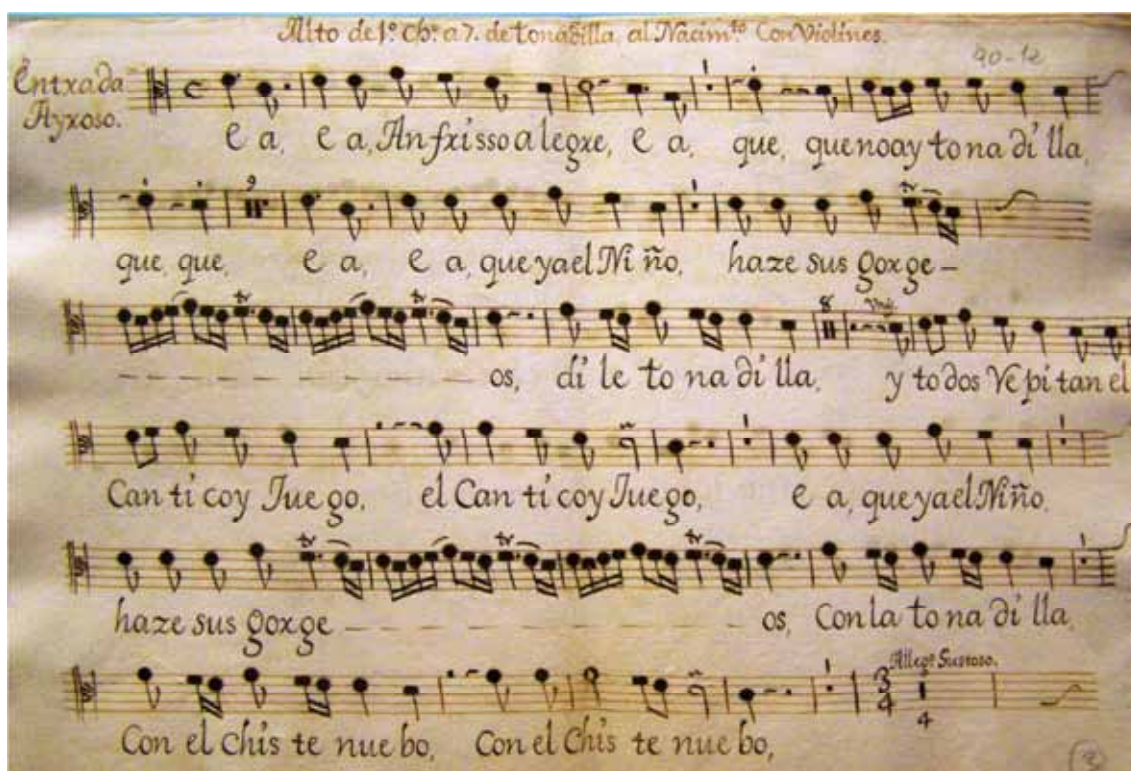 Alto de 1º. Chº. a 7. de tonadilla, al Nacim.to Con Violines.
90-12
Entrada
Ayroso.
e a, e a, Anfrisso alegre, e a, que, que no ay to na di lla,
que que, e a, e a, que ya el Ni ño, haze sus gorge –
– – – – – – – – – os, di le to na di lla, y to dos Re pi tan el
Can ti co y Juego, el Can ti co y Juego, e a, que ya el Niño.
haze sus gorge – – – – – – – – os, Con la to na di lla,
Alleg.º
Con el chis te nue bo, Con el Chis te nue bo,